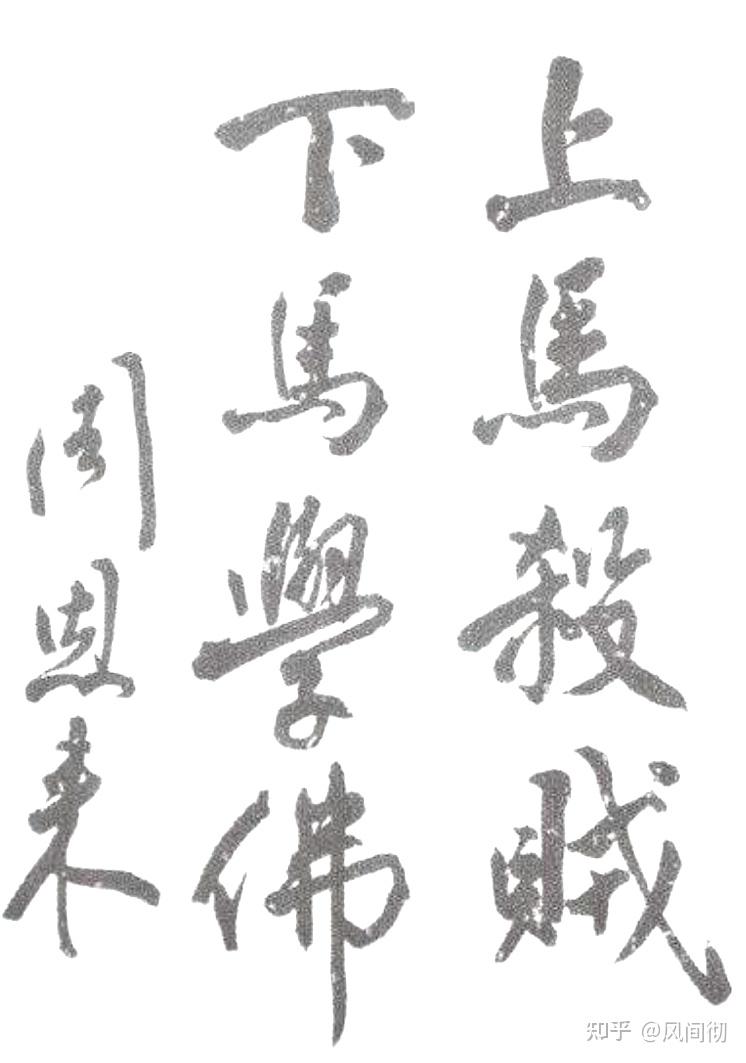 上馬殺賊
下馬學佛
周恩来
知乎 @风间彻